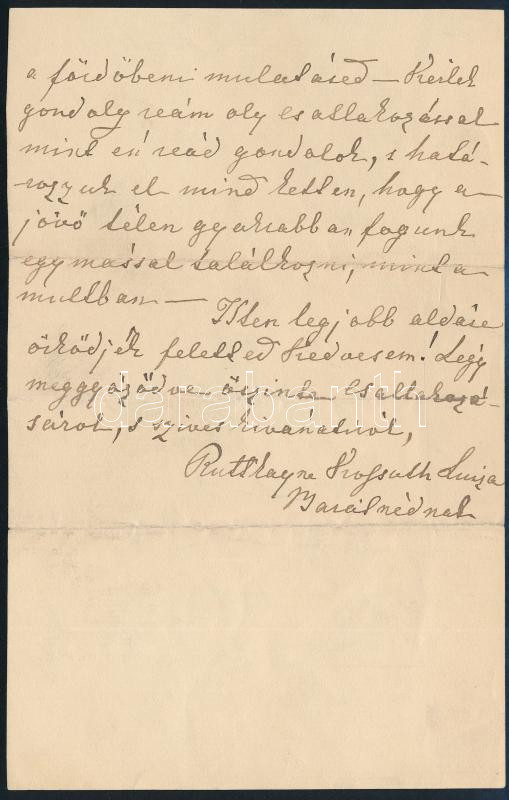 a fördőbeni mulatásod – Kérlek
gondoly reám oly csatlakozással
mint én reád gondolok, s hatá-
rozzuk el mind ketten, hogy a
jövő télen gyakrabban fogunk
egymással találkozni, mint a
multban –
Isten legjobb aldása
őrködjék feletted kedvesem! Légy
meggyőződve őszinte csatlakozá-
sárol, s szives kivánatiról,
Ruttkayne Kossuth Luiza
Barátnédnak
darabanth